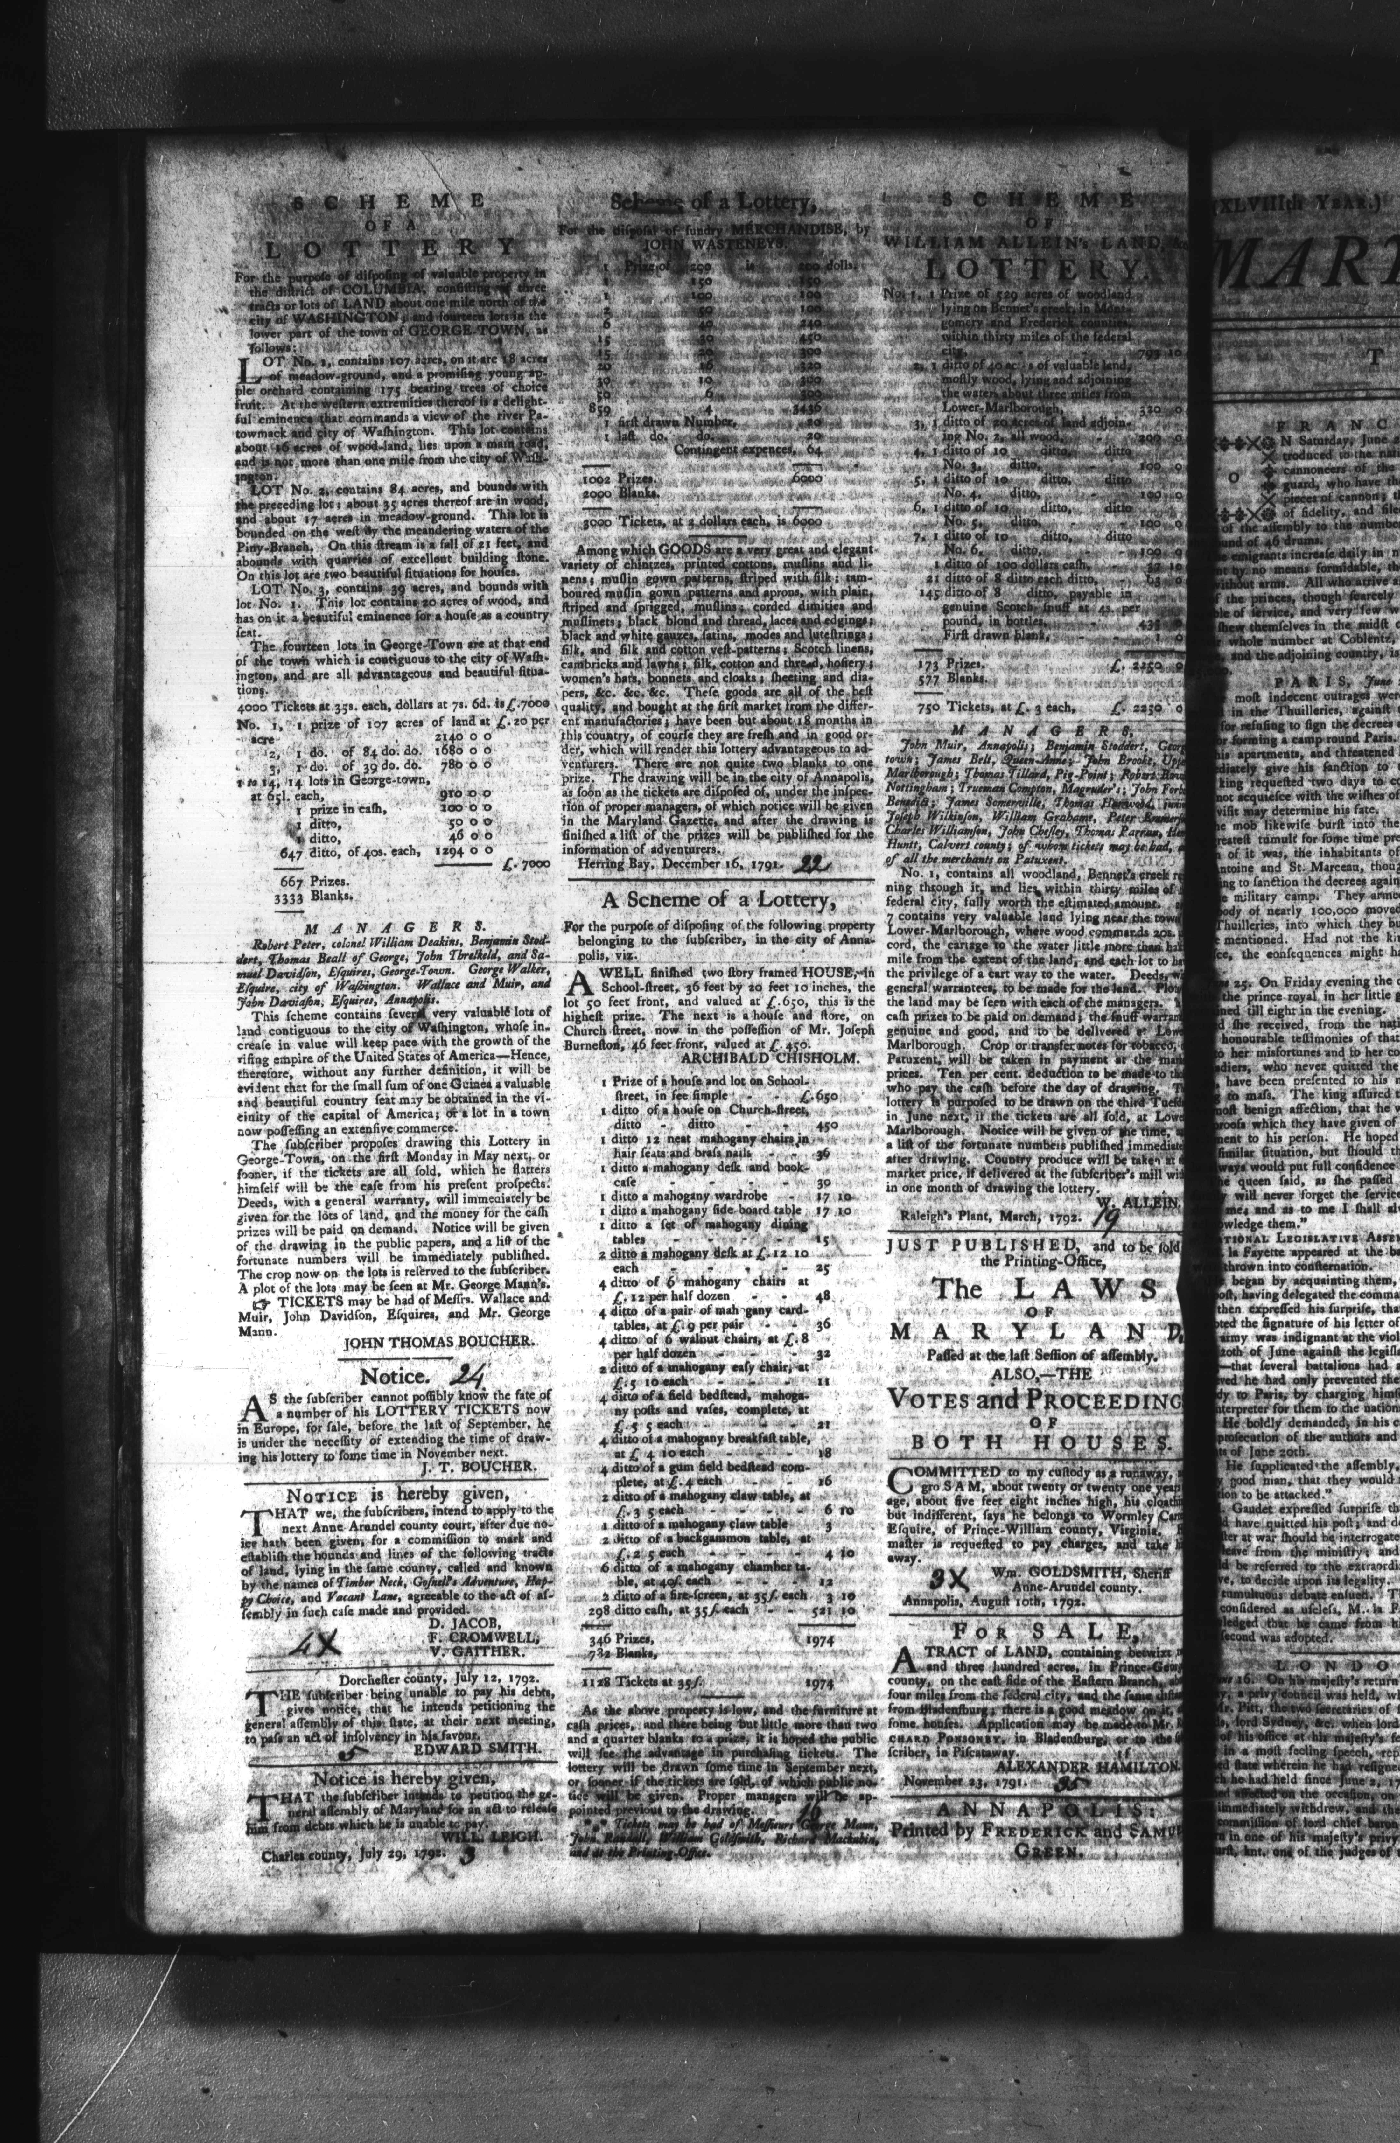 S C H E M E
OF A
L O T T E R Y
For the purpose of disposing of valuable property in
the district of COLUMBIA, consisting of three
tracts or lots of LAND about one mile north of the
city of WASHINGTON; and fourteen lots in the
lower part of the town of GEORGE-TOWN, as
follows:
LOT No. 1, contains 107 acres, on it are 18 acres
of meadow-ground, and a promising young ap-
ple orchard containing 175 bearing trees of choice
fruit. At the western extremities thereof is a delight-
ful eminence that commands a view of the river Pa-
towmack and city of Washington. This lot contains
about 16 acres of wood-land, lies upon a main road,
and is not more than one mile from the city of Wash-
ington.
LOT No. 2, contains 84 acres, and bounds with
the preceding lot; about 35 acres thereof are in wood,
and about 17 acres in meadow-ground. This lot is
bounded on the west by the meandering waters of the
Piny-Branch. On this stream is a fall of 21 feet, and
abounds with quarries of excellent building stone.
On this lot are two beautiful situations for houses.
LOT No. 3, contains 39 acres, and bounds with
lot No. 1. This lot contains 20 acres of wood, and
has on it a beautiful eminence for a house as a country
seat.
The fourteen lots in George-Town are at that end
of the town which is contiguous to the city of Wash-
ington, and are all advantageous and beautiful situa-
tions.
4000 Tickets at 35s. each, dollars at 7s. 6d. is £.7000
No. 1, 1 prize of 107 acres of land at £.20 per
acre 2140 0 0
2, 1 do. of 84 do. do. 1680 0 0
3, 1 do. of 39 do. do. 780 0 0
1 to 14, 14 lots in George-town,
at 65l. each, 910 0 0
1 prize in cash, 100 0 0
1 ditto, 50 0 0
1 ditto, 46 0 0
647 ditto, of 40s. each, 1294 0 0
£. 7000
667 Prizes.
3333 Blanks.
M A N A G E R S.
Robert Peter, colonel William Deakins, Benjamin Stod-
dert, Thomas Beall of George, John Threlkeld, and Sa-
muel Davidson, Esquires, George-Town. George Walker,
Esquire, city of Washington. Wallace and Muir, and
John Davidson, Esquires, Annapolis.
This scheme contains several very valuable lots of
land contiguous to the city of Washington, whose in-
crease in value will keep pace with the growth of the
rising empire of the United States of America—Hence,
therefore, without any further definition, it will be
evident that for the small sum of one Guinea a valuable
and beautiful country seat may be obtained in the vi-
cinity of the capital of America; or a lot in a town
now possessing an extensive commerce.
The subscriber proposes drawing this Lottery in
George-Town, on the first Monday in May next, or
sooner, if the tickets are all sold, which he flatters
himself will be the case from his present prospects.
Deeds, with a general warranty, will immediately be
given for the lots of land, and the money for the cash
prizes will be paid on demand. Notice will be given
of the drawing in the public papers, and a list of the
fortunate numbers will be immediately published.
The crop now on the lots is reserved to the subscriber.
A plot of the lots may be seen at Mr. George Mann's.
☞ TICKETS may be had of Messrs. Wallace and
Muir, John Davidson, Esquires, and Mr. George
Mann.
JOHN THOMAS BOUCHER.
Notice. 24
AS the subscriber cannot possibly know the fate of
a number of his LOTTERY TICKETS now
in Europe, for sale, before the last of September, he
is under the necessity of extending the time of draw-
ing his lottery to some time in November next.
J. T. BOUCHER.
NOTICE is hereby given,
THAT we, the subscribers, intend to apply to the
next Anne-Arundel county court, after due no-
ice hath been given, for a commission to mark and
establish the bounds and lines of the following tracts
of land, lying in the same county, called and known
by the names of Timber Neck, Gosnell's Adventure, Hap-
py Choice, and Vacant Lane, agreeable to the act of as-
sembly in such case made and provided.
D. JACOB,
4X F. CROMWELL,
V. GAITHER.
Dorchester county, July 12, 1792.
THE subscriber being unable to pay his debts,
gives notice, that he intends petitioning the
general assembly of this state, at their next meeting,
to pass an act of insolvency in his favour.
5 EDWARD SMITH.
Notice is hereby given,
THAT the subscriber intends to petition the ge-
neral assembly of Maryland for an act to release
him from debts which he is unable to pay.
WILL. LEIGH.
Charles county, July 29, 1792. 3
Scheme of a Lottery,
For the disposal of sundry MERCHANDISE, by
JOHN WASTENEYS.
1 Prize of 200 is 200 dolls.
1 150 150
1 100 100
2 50 100
6 40 240
15 30 450
15 20 300
20 16 320
30 10 300
50 6 300
859 4 3436
1 first drawn Number, 20
1 last do. do. 20
Contingent expences, 64
1002 Prizes. 6000
2000 Blanks.
3000 Tickets, at 2 dollars each, is 6000
Among which GOODS are a very great and elegant
variety of chintzes, printed cottons, muslins and li-
nens; muslin gown patterns, striped with silk; tam-
boured muslin gown patterns and aprons, with plain,
striped and sprigged, muslins; corded dimities and
muslinets; black blond and thread, laces and edgings;
black and white gauzes, satins, modes and lutestrings;
silk, and silk and cotton vest-patterns; Scotch linens,
cambricks and lawns; silk, cotton and thread, hosiery;
women's hats, bonnets and cloaks; sheeting and dia-
pers, &c. &c. &c. These goods are all of the best
quality, and bought at the first market from the differ-
ent manufactories; have been but about 18 months in
this country, of course they are fresh and in good or-
der, which will render this lottery advantageous to ad-
venturers. There are not quite two blanks to one
prize. The drawing will be in the city of Annapolis,
as soon as the tickets are disposed of, under the inspec-
tion of proper managers, of which notice will be given
in the Maryland Gazette, and after the drawing is
finished a list of the prizes will be published for the
information of adventurers.
Herring Bay, December 16, 1791. 22
A Scheme of a Lottery,
For the purpose of disposing of the following property
belonging to the subscriber, in the city of Anna-
polis, viz.
A WELL finished two story framed HOUSE, in
School-street, 36 feet by 20 feet 10 inches, the
lot 50 feet front, and valued at £.650, this is the
highest prize. The next is a house and store, on
Church street, now in the possession of Mr. Joseph
Burneston, 46 feet front, valued at £.450.
ARCHIBALD CHISHOLM.
1 Prize of a house and lot on School-
street, in fee simple - - £.650
1 ditto of a house on Church-street,
ditto - ditto - - 450
1 ditto 12 neat mahogany chairs in
hair seats and brass nails - - 36
1 ditto a mahogany desk and book-
case - - - - 30
1 ditto a mahogany wardrobe - 17 10
1 ditto a mahogany side-board table 17 10
1 ditto a set of mahogany dining
tables - - - - 15
2 ditto a mahogany desk at £.12 10
each - - - - 25
4 ditto of 6 mahogany chairs at
£.12 per half dozen - - 48
4 ditto of a pair of mahogany card-
tables, at £.9 per pair - - 36
4 ditto of 6 walnut chairs, at £.8
per half dozen - - - 32
2 ditto of a mahogany easy chair, at
£.5 10 each - - - 11
4 ditto of a field bedstead, mahoga-
ny posts and vases, complete, at
£.5 5 each - - - 21
4 ditto of a mahogany breakfast table,
at £ 4 10 each - - - 18
4 ditto of a gum field bedstead com-
plete, at £.4 each - - 16
2 ditto of a mahogany claw table, at
£.3 5 each - - - 6 10
1 ditto of a mahogany claw table 3
2 ditto of a backgammon table, at
£.2 5 each - - - 4 10
6 ditto of a mahogany chamber ta-
ble, at 40s. each - - 12
2 ditto of a fire-screen, at 35s. each 3 10
298 ditto cash, at 35s. each - - 521 10
346 Prizes, 1974
782 Blanks,
1128 Tickets at 35s. 1974
As the above property is low, and the furniture at
cash prices, and there being but little more than two
and a quarter blanks to a prize, it is hoped the public
will see the advantage in purchasing tickets. The
lottery will be drawn some time in September next,
or sooner if the tickets are sold, of which public no-
tice will be given. Proper managers will be ap-
pointed previous to the drawing. 16
*** Tickets may be had of Messieurs George Mann,
John Randall, William Goldsmith, Richard Mackubin,
and at the Printing-Office.
S C H E M E
OF
WILLIAM ALLEIN's LAND,
L O T T E R Y.
No. 1, 1 Prize of 529 acres of woodland,
lying on Bennet's creek, in Mont-
gomery and Frederick counties,
within thirty miles of the federal
city, 793 10
2, 1 ditto of 40 acres of valuable land,
mostly wood, lying and adjoining
the water, about three miles from
Lower-Marlborough, 320 0
3, 1 ditto of 20 acres of land adjoin-
ing No. 2, all wood, - 200 0
4, 1 ditto of 10 ditto, ditto
No. 3, ditto, 100 0
5, 1 ditto of 10 ditto, ditto
No. 4, ditto, - 100 0
6, 1 ditto of 10 ditto, ditto
No. 5, ditto, - 100 0
7, 1 ditto of 10 ditto, ditto
No. 6, ditto, - - 100 0
1 ditto of 100 dollars cash, 37 10
21 ditto of 8 ditto each ditto, - 63 0
145 ditto of 8 ditto, payable in
genuine Scotch snuff at 4s. per
pound, in bottles, - 435 0
First drawn blank, - - 1 0
173 Prizes. £. 2250 0
577 Blanks.
750 Tickets, at £.3 each, £. 2250 0
M A N A G E R S,
John Muir, Annapolis; Benjamin Stoddert, George
town; James Belt, Queen-Anne; John Brooks, Upper
Marlborough; Thomas Tillard, Pig-Point; Robert
Nottingham; Trueman Compton, Magruder's; John
Benedict; James Somerville, Thomas Harwood,
Joseph Wilkinson, William Grahame, Peter
Charles Williamson, John Chesley, Thomas Parran,
Huntt, Calvert county; of whom tickets may be had,
of all the merchants on Patuxent.
No. 1, contains all woodland, Bennet's creek
ning through it, and lies within thirty miles of
federal city, fully worth the estimated amount.
7 contains very valuable land lying near the town
Lower-Marlborough, where wood commands 20s.
cord, the cartage to the water little more than half
mile from the extent of the land, and each lot to have
the privilege of a cart way to the water. Deeds,
general warrantees, to be made for the land. Plots
the land may be seen with each of the managers.
cash prizes to be paid on demand; the snuff warrant
genuine and good, and to be delivered at Lower
Marlborough. Crop or transfer notes for tobacco,
Patuxent, will be taken in payment at the market
prices. Ten per cent. deduction to be made to those
who pay the cash before the day of drawing. The
lottery is purposed to be drawn on the third Tuesday
in June next, if the tickets are all sold, at Lower
Marlborough. Notice will be given of the time, and
a list of the fortunate numbers published immediately
after drawing. Country produce will be taken at
market price, if delivered at the subscriber's mill with
in one month of drawing the lottery.
W. ALLEIN.
Raleigh's Plant, March, 1792. 19
JUST PUBLISHED, and to be sold
the Printing-Office,
The L A W S
OF
M A R Y L A N D,
Passed at the last Session of assembly.
ALSO,—THE
VOTES and PROCEEDING
OF
BOTH HOUSES.
COMMITTED to my custody as a runaway,
gro SAM, about twenty or twenty one years
age, about five feet eight inches high, his cloathing
but indifferent, says he belongs to Wormley
Esquire, of Prince-William county, Virginia.
master is requested to pay charges, and take
away.
3X Wm. GOLDSMITH, Sheriff
Anne-Arundel county.
Annapolis, August 10th, 1792.
FOR SALE,
A TRACT of LAND, containing betwixt
and three hundred acres, in Prince-George
county, on the east side of the Eastern Branch,
four miles from the federal city, and the same distance
from Bladensburg; there is a good meadow on it,
some houses. Application may be made to Mr.
CHARD PONSONBY, in Bladensburg, or to the
scriber, in Piscataway.
ALEXANDER HAMILTON
November 23, 1791. 35
A N N A P O L I S:
Printed by FREDERICK and SAMU
GREEN.
(XLVIIIth YEAR.)
MARY
T
F R A N C
N Saturday, June
troduced to the
cannoneers of the
guard, who have
pieces of cannon;
of fidelity, and
of the assembly to the number
und of 46 drums.
emigrants increase daily in
by no means formidable,
without arms. All who arrive
of the princes, though scarcely
ble of service, and very few
shew themselves in the midst
whole number at Coblentz,
and the adjoining country, is
PARIS, June
most indecent outrages were
in the Thuilleries, against
for refusing to sign the decrees
or forming a camp round Paris.
his apartments, and threatened
diately give his sanction to
king requested two days to
not acquiesce with the wishes of
visit may determine his fate.
he mob likewise burst into the
reatest tumult for some time
of it was, the inhabitants of
ntoine and St. Marceau, though
ing to sanction the decrees again
e military camp. They armed
body of nearly 100,000 moved
Thuilleries, into which they
mentioned. Had not the
ce, the consequences might
25. On Friday evening the
the prince royal in her little
ned till eight in the evening.
she received, from the
honourable testimonies of that
to her misfortunes and to her
diers, who never quitted the
have been presented to his
to mass. The king assured
most benign affection, that he
proofs which they have given of
ment to his person. He hoped
similar situation, but should
ways would put full confidence
he queen said, as she passed
will never forget the service
me; and as to me I shall
owledge them."
TIONAL LEGISLATIVE ASSEM
la Fayette appeared at the
thrown into consternation.
began by acquainting them,
post, having delegated the comma
then expressed his surprise, that
pted the signature of his letter of
army was indignant at the
20th of June against the legisla
—that several battalions had
ved he had only prevented the
dy to Paris, by charging
nterpreter for them to the nation
He boldly demanded, in his
prosecution of the authors and
ts of June 20th.
He supplicated the assembly,
good man, that they would
tion to be attacked."
Gaudet expressed surprise
have quitted his post; and
ter at war should be interrogated
leave from the ministry; and
ld be referred to the extraordi
ve, to decide upon its legality.
tumultuous debate ensued.
considered as useless, M. la F
ledged that he came from his
second was adopted.
L O N D O
16. On his majesty's return
a privy council was held,
Pitt, the two secretaries of
lord Sydney, &c. when lord
of his office at his majesty's
in a most feeling speech,
state wherein he had resigned
he had held since June 2,
affected on the occasion,
immediately withdrew, and
commission of lord chief baron
in one of his majesty's privy
knt. one of the judges of